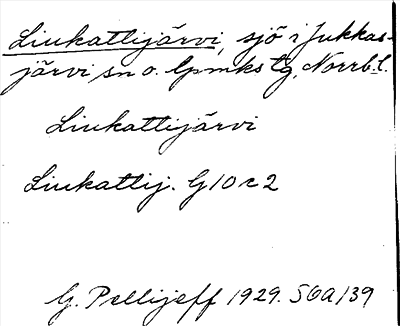 Liukattijärvi, sjö i Jukkas-
järvi sn o. lpmks tg, Norrb. l.
Liukattijärvi
Liukattij. G10 c 2
G. Pellijeff 1929. SOA/39